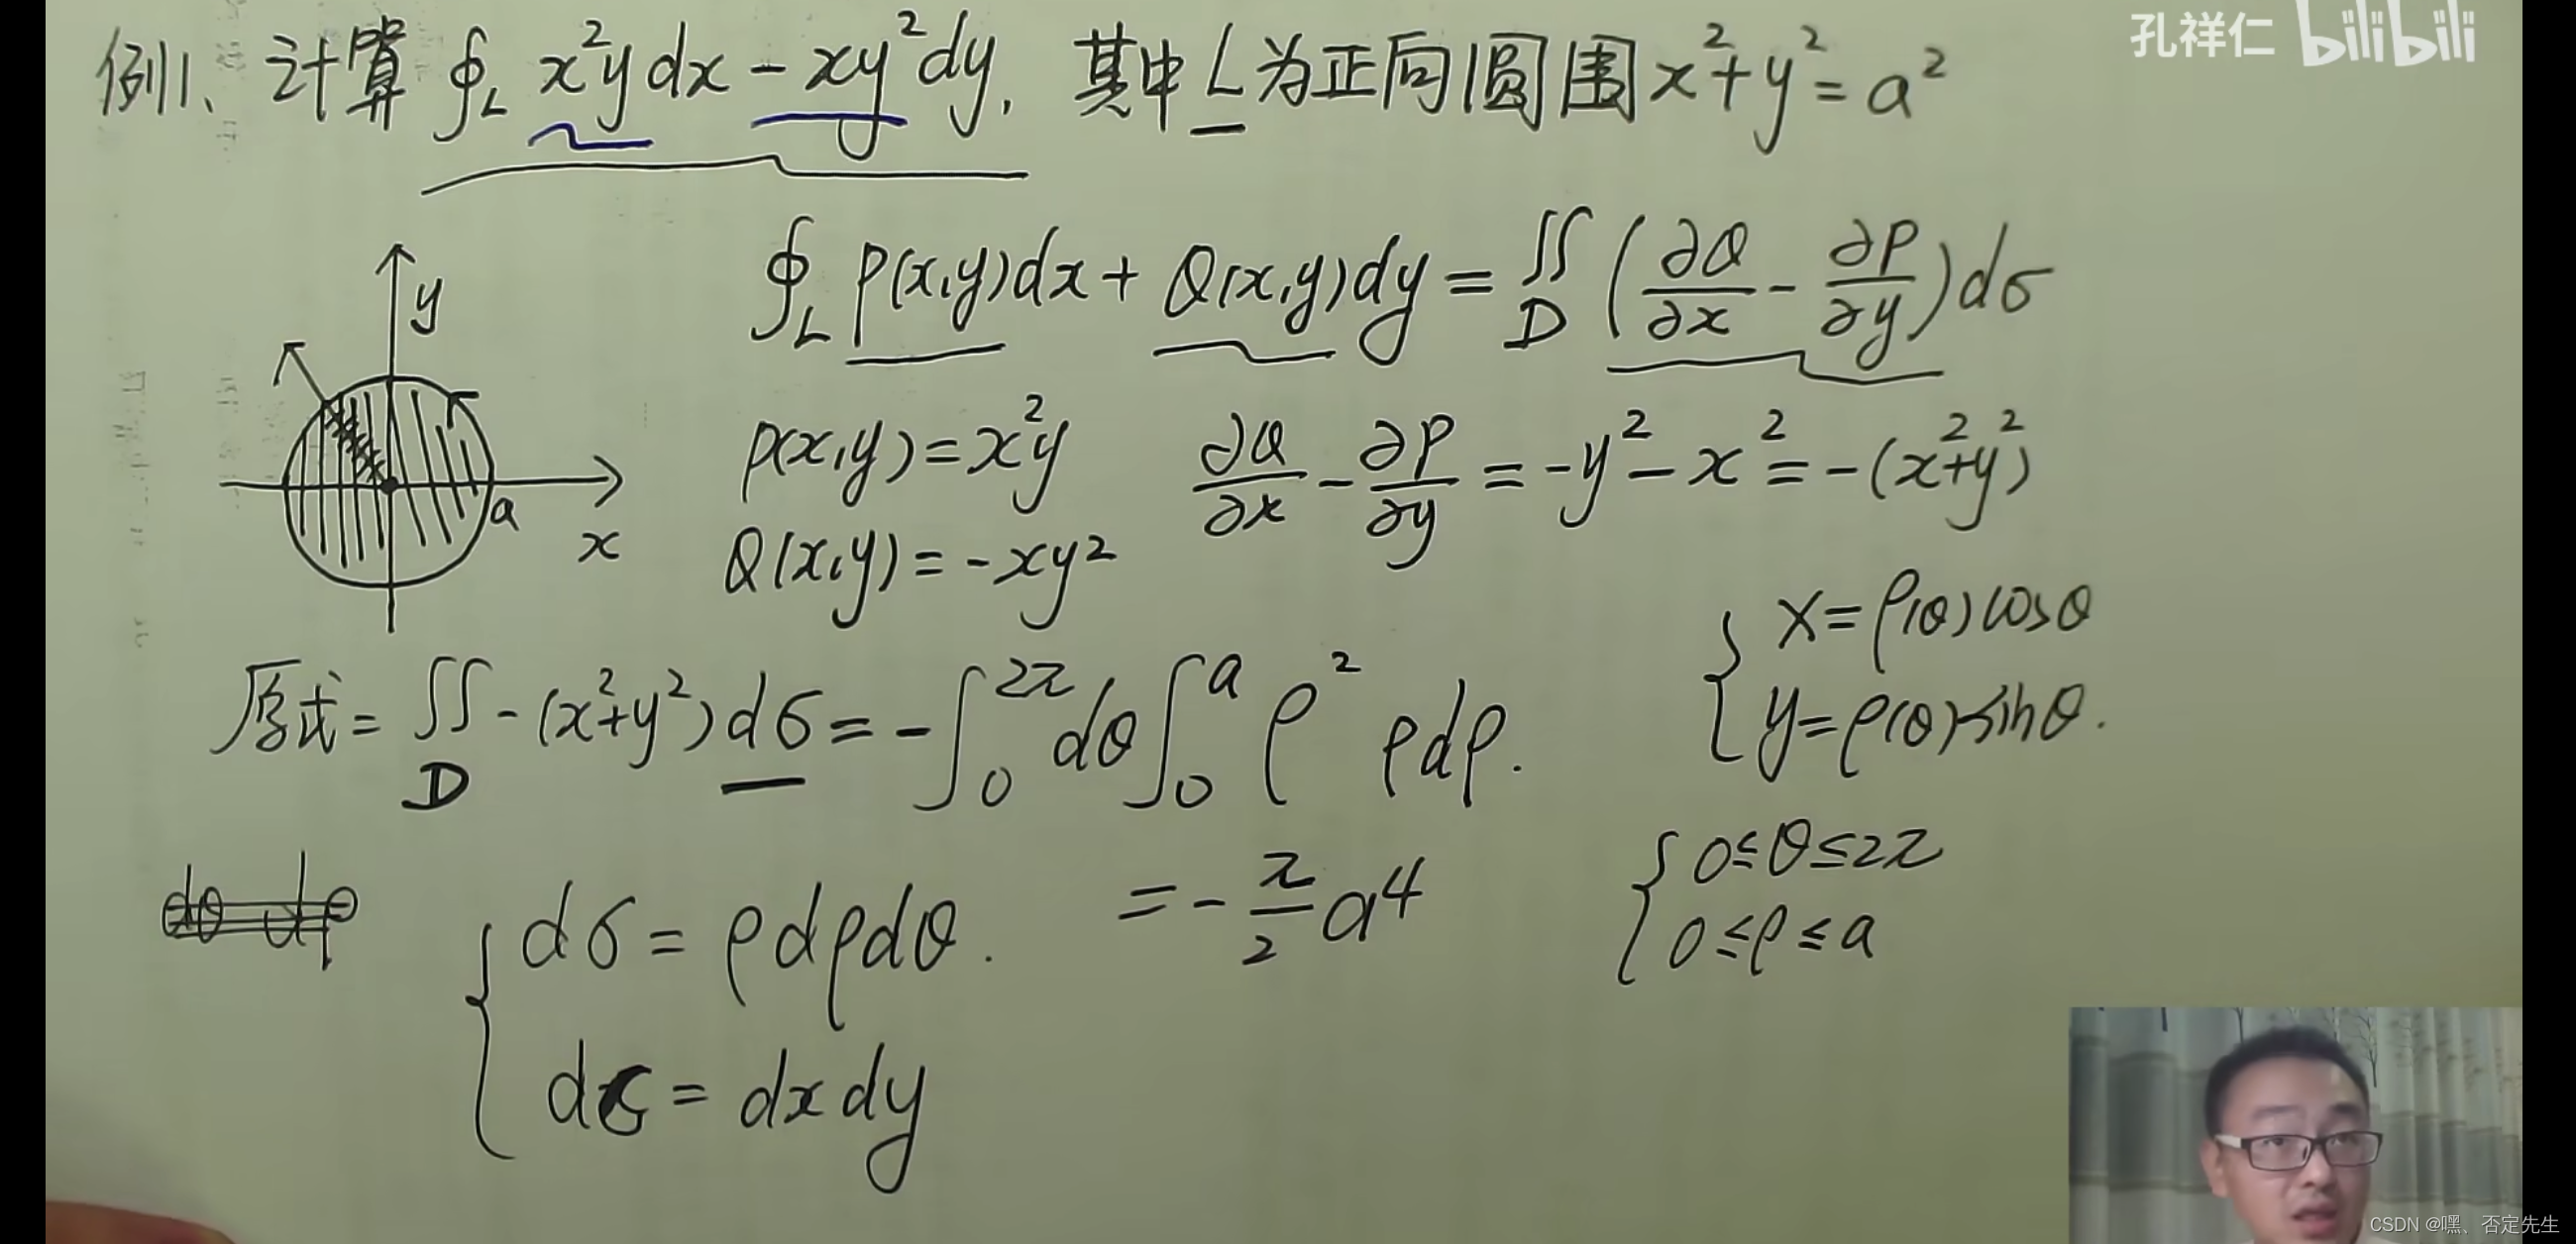 孔祥仁 bilibili
例1、计算 ∮_L x²y dx - xy² dy, 其中 L 为正向圆围 x²+y²=a²
∮_L P(x,y)dx + Q(x,y)dy = ∬_D (∂Q/∂x - ∂P/∂y)dσ
y
a
x
P(x,y)=x²y
∂Q/∂x - ∂P/∂y = -y² - x² = -(x²+y²)
Q(x,y)=-xy²
{ x=ρ(θ)cosθ
y=ρ(θ)sinθ.
原式= ∬_D -(x²+y²)dσ = -∫_0^{2π} dθ ∫_0^a ρ² ρdρ.
= -π/2 a⁴
{ 0≤θ≤2π
0≤ρ≤a
dθ dρ
{ dσ = ρdρdθ.
dσ = dxdy
CSDN @嘿、否定先生